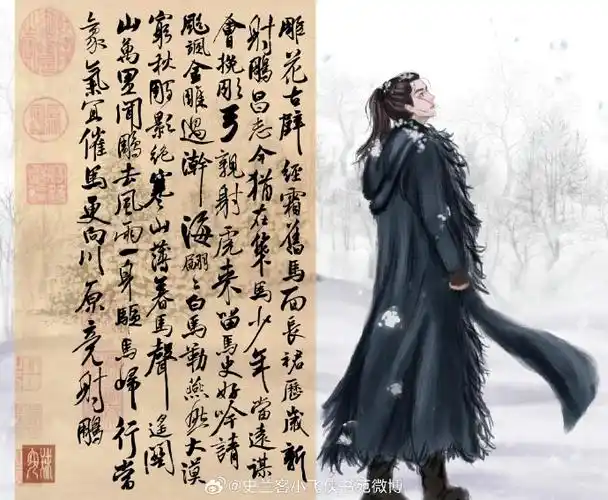 雕花古辟經霜舊馬面長裙歷歲新
射鵰昌志今猶在策馬少年當遠謀
會挽彫弓親射虎来馬史好吟請
飈颯金雕過瀚海翩〻白馬勒燕然大漠
窮秋彫影絕寒山薄暮馬聲遙關
山萬里聞鵰去風雨一身驅馬歸行當
豪氣宜催馬更向川原竞射鵰
@史兰客小飞侠书苑微博